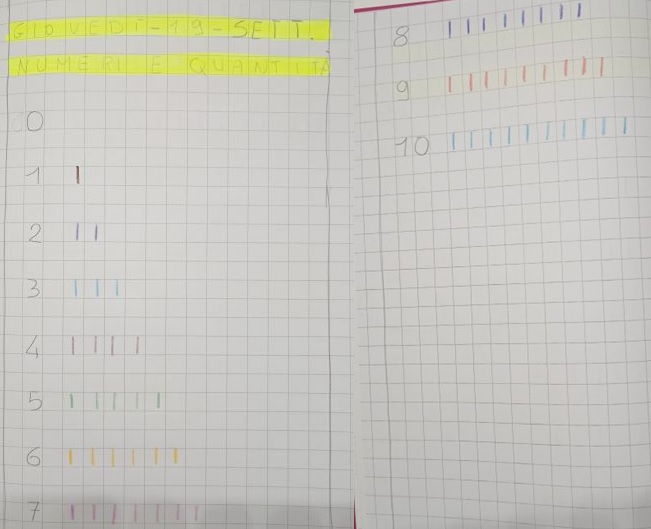 GIOVEDÌ-19-SETT.
NUMERI E QUANTITÀ
0
1 |
2 | |
3 | | |
4 | | | |
5 | | | | |
6 | | | | | |
7 | | | | | | |
8 | | | | | | | |
9 | | | | | | | | |
10 | | | | | | | | | |